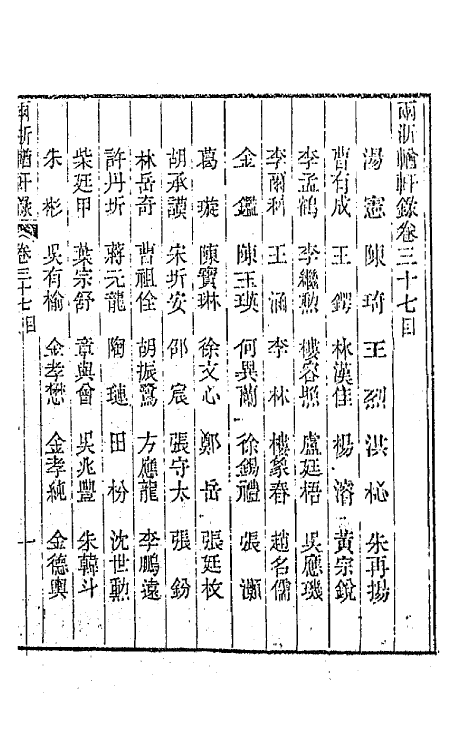 兩浙輶軒錄卷三十七目
湯憲　陳琦　王烈　洪柲　朱再揚
曹有成　王鍔　林漢佳　楊濬　黃宗銳
李孟鶴　李繼勲　樓容照　盧廷梧　吳應璣
李爾秇　王涵　李林　樓象春　趙名儒
金鑑　陳玉瑛　何異蘭　徐錫禮　張灝
葛璇　陳寶琳　徐文心　鄭岳　張廷枚
胡承謨　宋圻安　邵宸　張守太　張鈖
林岳奇　曹祖佺　胡振鷺　方應龍　李鵬遠
許丹圻　蔣元龍　陶璉　田枌　沈世勲
柴廷甲　葉宗舒　章與曾　吳兆豐　朱韓斗
朱彬　吳有榆　金孝楙　金孝純　金德輿
兩浙輶軒錄　卷三十七目　一